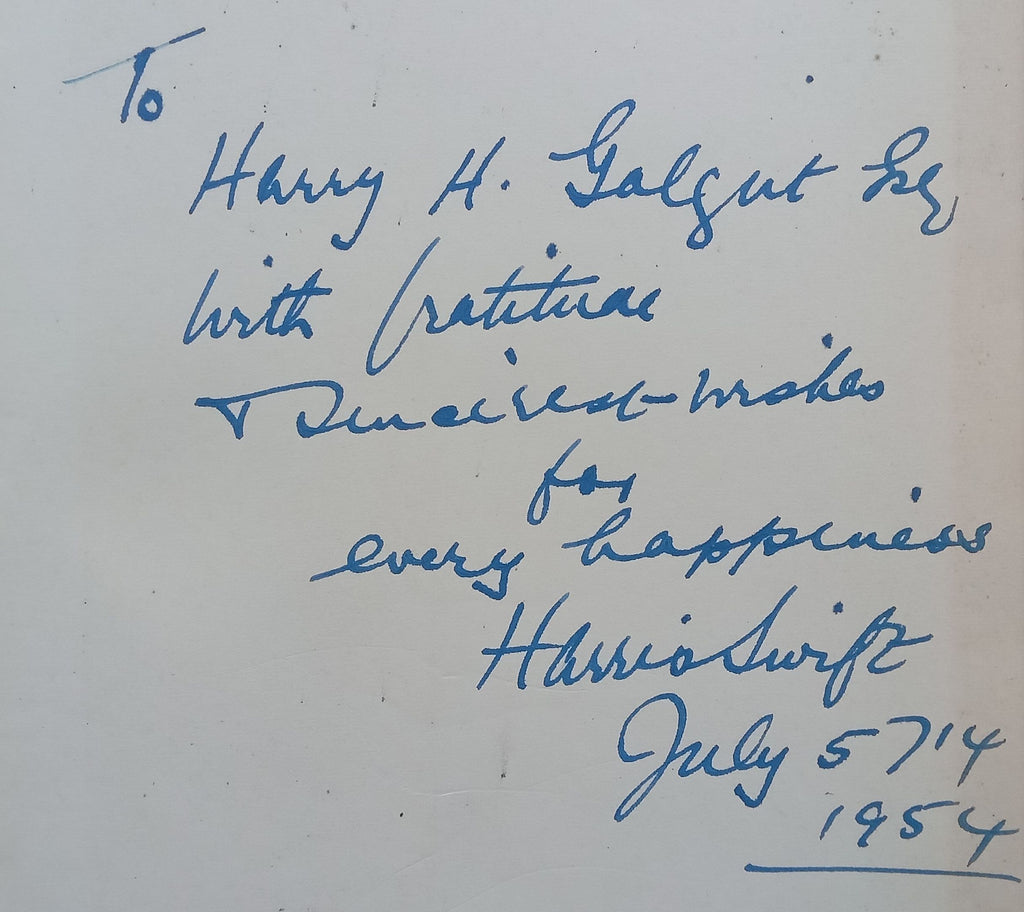 To
Harry H. Galgut Esq
With Gratitude
& Sincerest wishes
for
every happiness
Harris Swift
July 5
1954